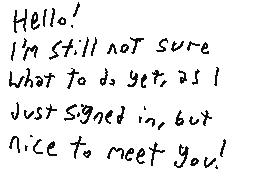 Hello!
I'm still not sure
what to do yet, as I
Just signed in, but
nice to meet you!